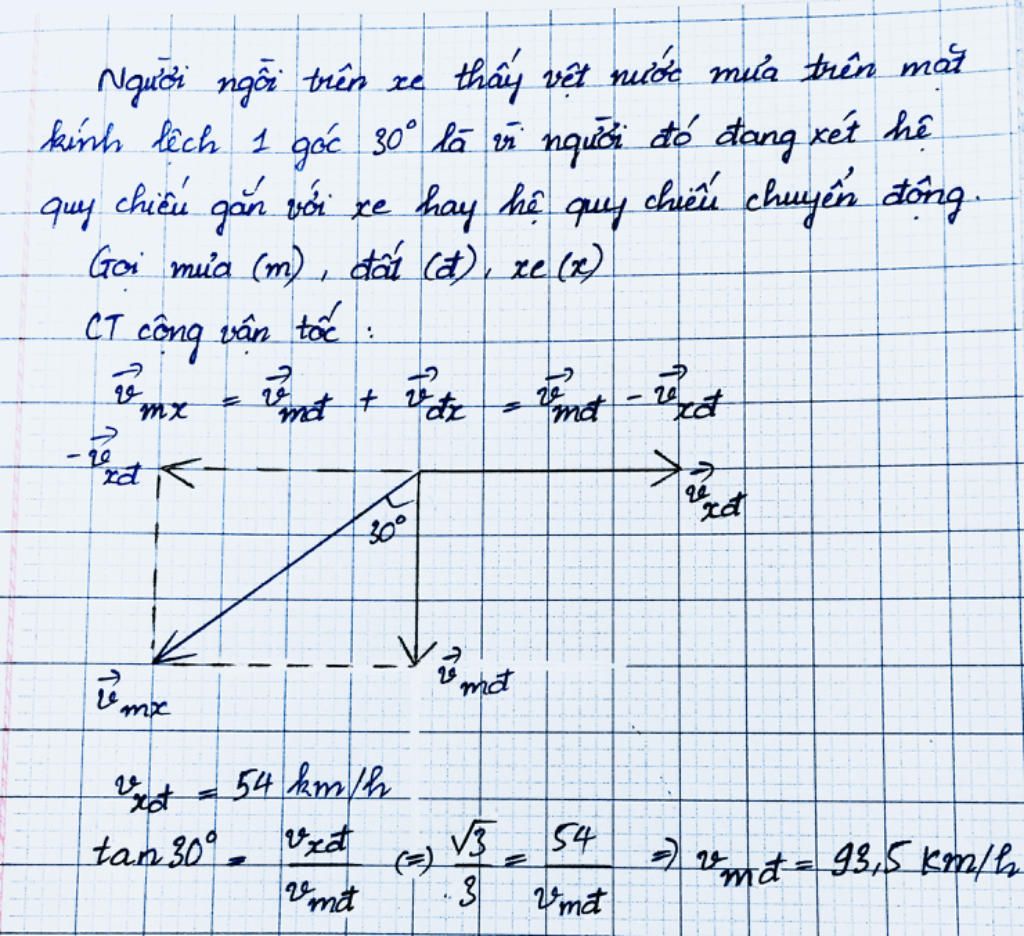 Người ngồi trên xe thấy vệt nước mưa trên mặt
kính lệch 1 góc 30° là vì người đó đang xét hệ
quy chiếu gắn với xe hay hệ quy chiếu chuyển động.
Gọi mưa (m), đất (đ), xe (x)
CT cộng vận tốc :
v⃗mx = v⃗mđ + v⃗đx = v⃗mđ - v⃗xđ
-v⃗xđ
v⃗xđ
30°
v⃗mđ
v⃗mx
vxđ = 54 km/h
tan30° = vxđ/vmđ (=) √3/3 = 54/vmđ =) vmđ = 93,5 km/h